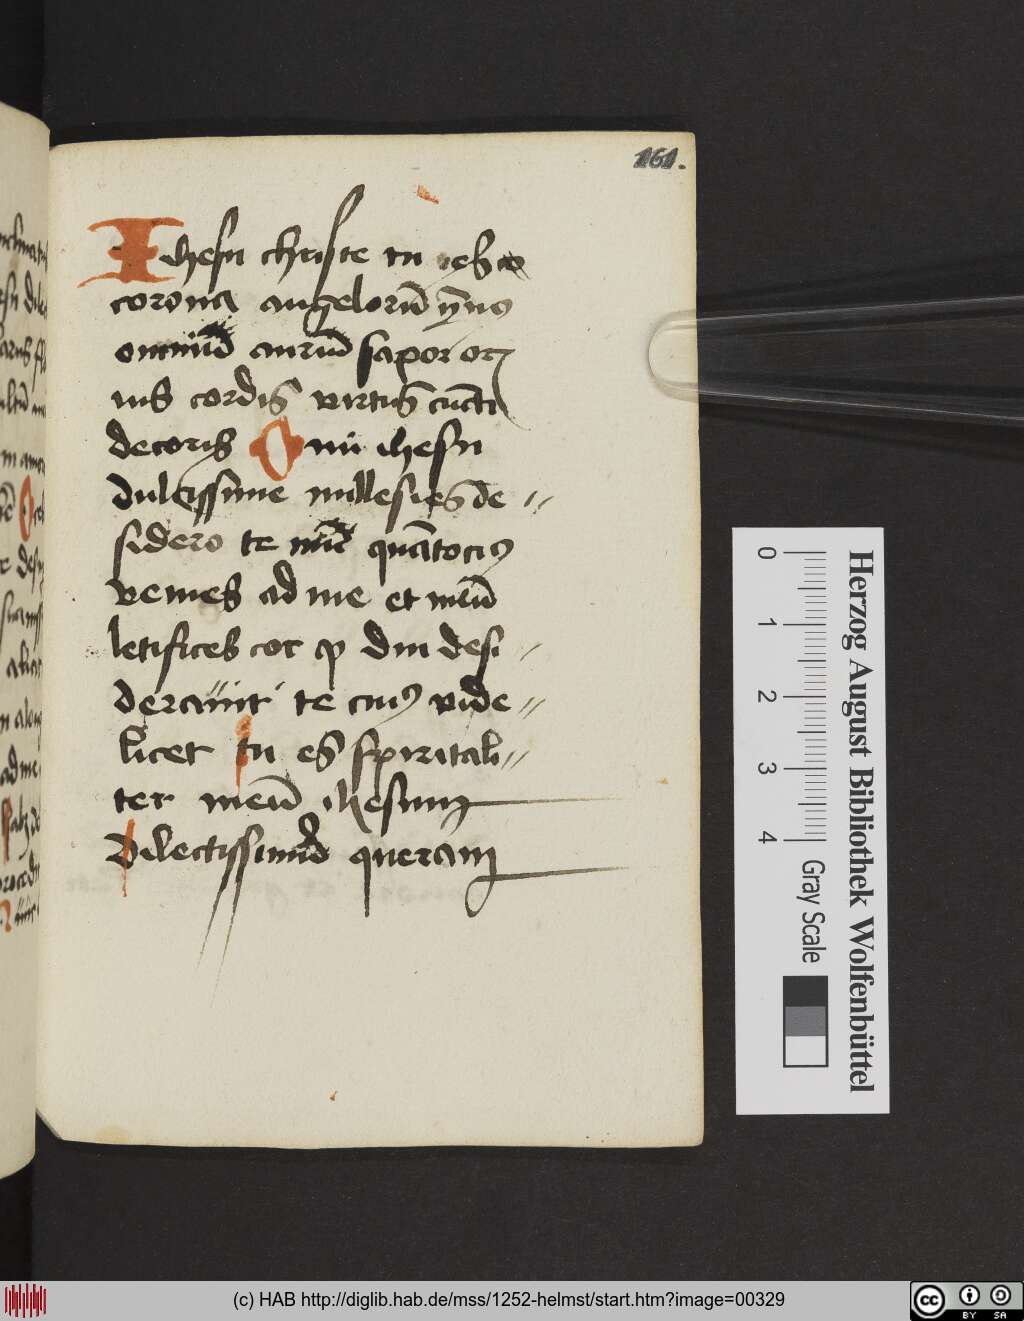 161.
Ihesu christe tu es
corona angelorū ymus
omniū auriū sapor or
nus cordis virtus cucti
decoris O mi ihesu
dulcissime millesies de //
sidero te mi quātocius
venies ad me et meū
letifices cor qͥ diu desi /
derauit te cuius vide //
licet tu es spiritali //
ter meū ihesum
dilectissimū queram
Herzog August Bibliothek Wolfenbüttel
0 1 2 3 4
Gray Scale
(c) HAB http://diglib.hab.de/mss/1252-helmst/start.htm?image=00329
cc BY SA